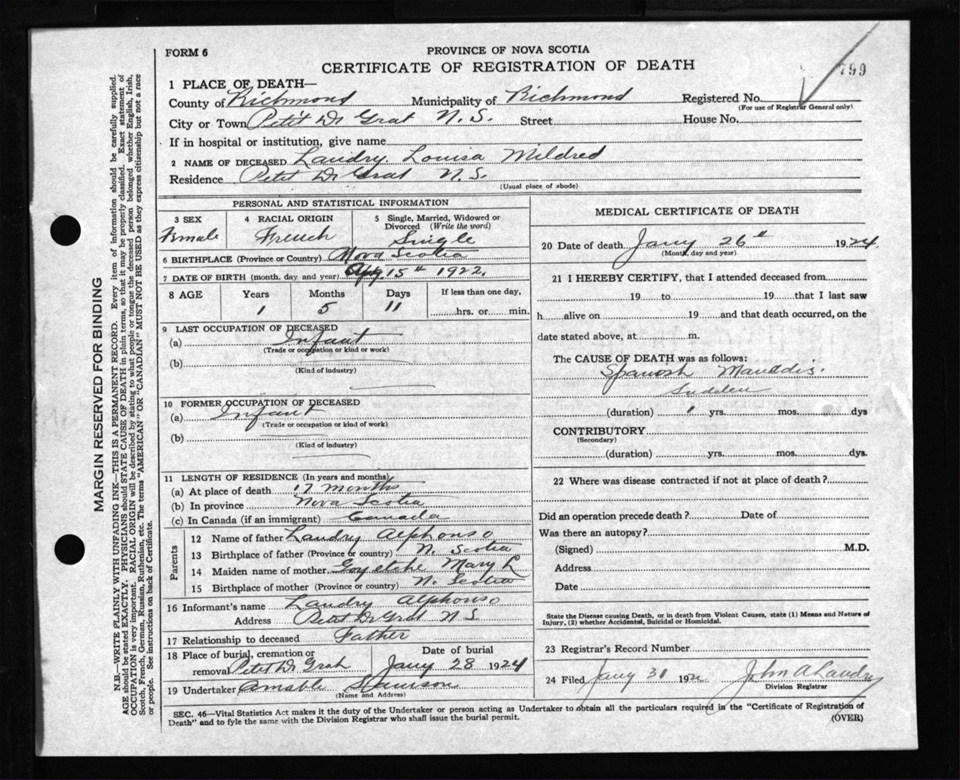 799
FORM 6
PROVINCE OF NOVA SCOTIA
CERTIFICATE OF REGISTRATION OF DEATH
1 PLACE OF DEATH—
County of Richmond Municipality of Richmond Registered No.
(For use of Registrar General only)
City or Town Petit De Grat N.S. Street House No.
If in hospital or institution, give name
2 NAME OF DECEASED Landry, Louisa Mildred
Residence Petit De Grat N.S.
(Usual place of abode)
PERSONAL AND STATISTICAL INFORMATION
3 SEX Female
4 RACIAL ORIGIN French
5 Single, Married, Widowed or Divorced (Write the word) Single
6 BIRTHPLACE (Province or Country) Nova Scotia
7 DATE OF BIRTH (month, day and year) 15th 1922
8 AGE Years 1 Months 5 Days 11 If less than one day, hrs. or min.
9 LAST OCCUPATION OF DECEASED
(a) Infant
(Trade or occupation or kind or work)
(b)
(Kind of industry)
10 FORMER OCCUPATION OF DECEASED
(a) Infant
(Trade or occupation or kind of work)
(b)
(Kind of industry)
11 LENGTH OF RESIDENCE (In years and months)
(a) At place of death 17 months
(b) In province Nova Scotia
(c) In Canada (if an immigrant) Canada
Parents
12 Name of father Landry Alphonso
13 Birthplace of father (Province or country) N. Scotia
14 Maiden name of mother Mary L
15 Birthplace of mother (Province or country) N. Scotia
16 Informant's name Landry Alphonso
Address Petit De Grat N S
17 Relationship to deceased Father
18 Place of burial, cremation or removal Petit De Grat
Date of burial Jany 28 1924
19 Undertaker Amable
(Name and Address)
MEDICAL CERTIFICATE OF DEATH
20 Date of death Jany 26th 1924
(Month, day and year)
21 I HEREBY CERTIFY, that I attended deceased from
19 to 19 that I last saw
h alive on 19 and that death occurred, on the
date stated above, at m.
The CAUSE OF DEATH was as follows:
(duration) yrs. mos. dys
CONTRIBUTORY
(Secondary)
(duration) yrs. mos. dys.
22 Where was disease contracted if not at place of death?
Did an operation precede death? Date of
Was there an autopsy?
(Signed) M.D.
Address
Date
State the Disease causing Death, or in death from Violent Causes, state (1) Means and Nature of
Injury, (2) whether Accidental, Suicidal or Homicidal.
23 Registrar's Record Number
24 Filed Jany 31 192 John A Landry
Division Registrar
SEC. 46—Vital Statistics Act makes it the duty of the Undertaker or person acting as Undertaker to obtain all the particulars required in the "Certificate of Registration of
Death" and to fyle the same with the Division Registrar who shall issue the burial permit.
(OVER)
MARGIN RESERVED FOR BINDING
N.B.—WRITE PLAINLY WITH UNFADING INK—THIS IS A PERMANENT RECORD. Every item of information should be carefully supplied.
AGE should be stated EXACTLY. PHYSICIANS should STATE CAUSE OF DEATH in plain terms, so that it may be properly classified. Exact statement of
OCCUPATION is very important. RACIAL ORIGIN will be described by stating to what people or tongue the deceased person belonged whether English, Irish,
Scotch, French, German, Russian, Ruthenian, etc. The terms "AMERICAN" OR "CANADIAN" MUST NOT BE USED as they express citizenship but not a race
or people. See instructions on back of Certificate.